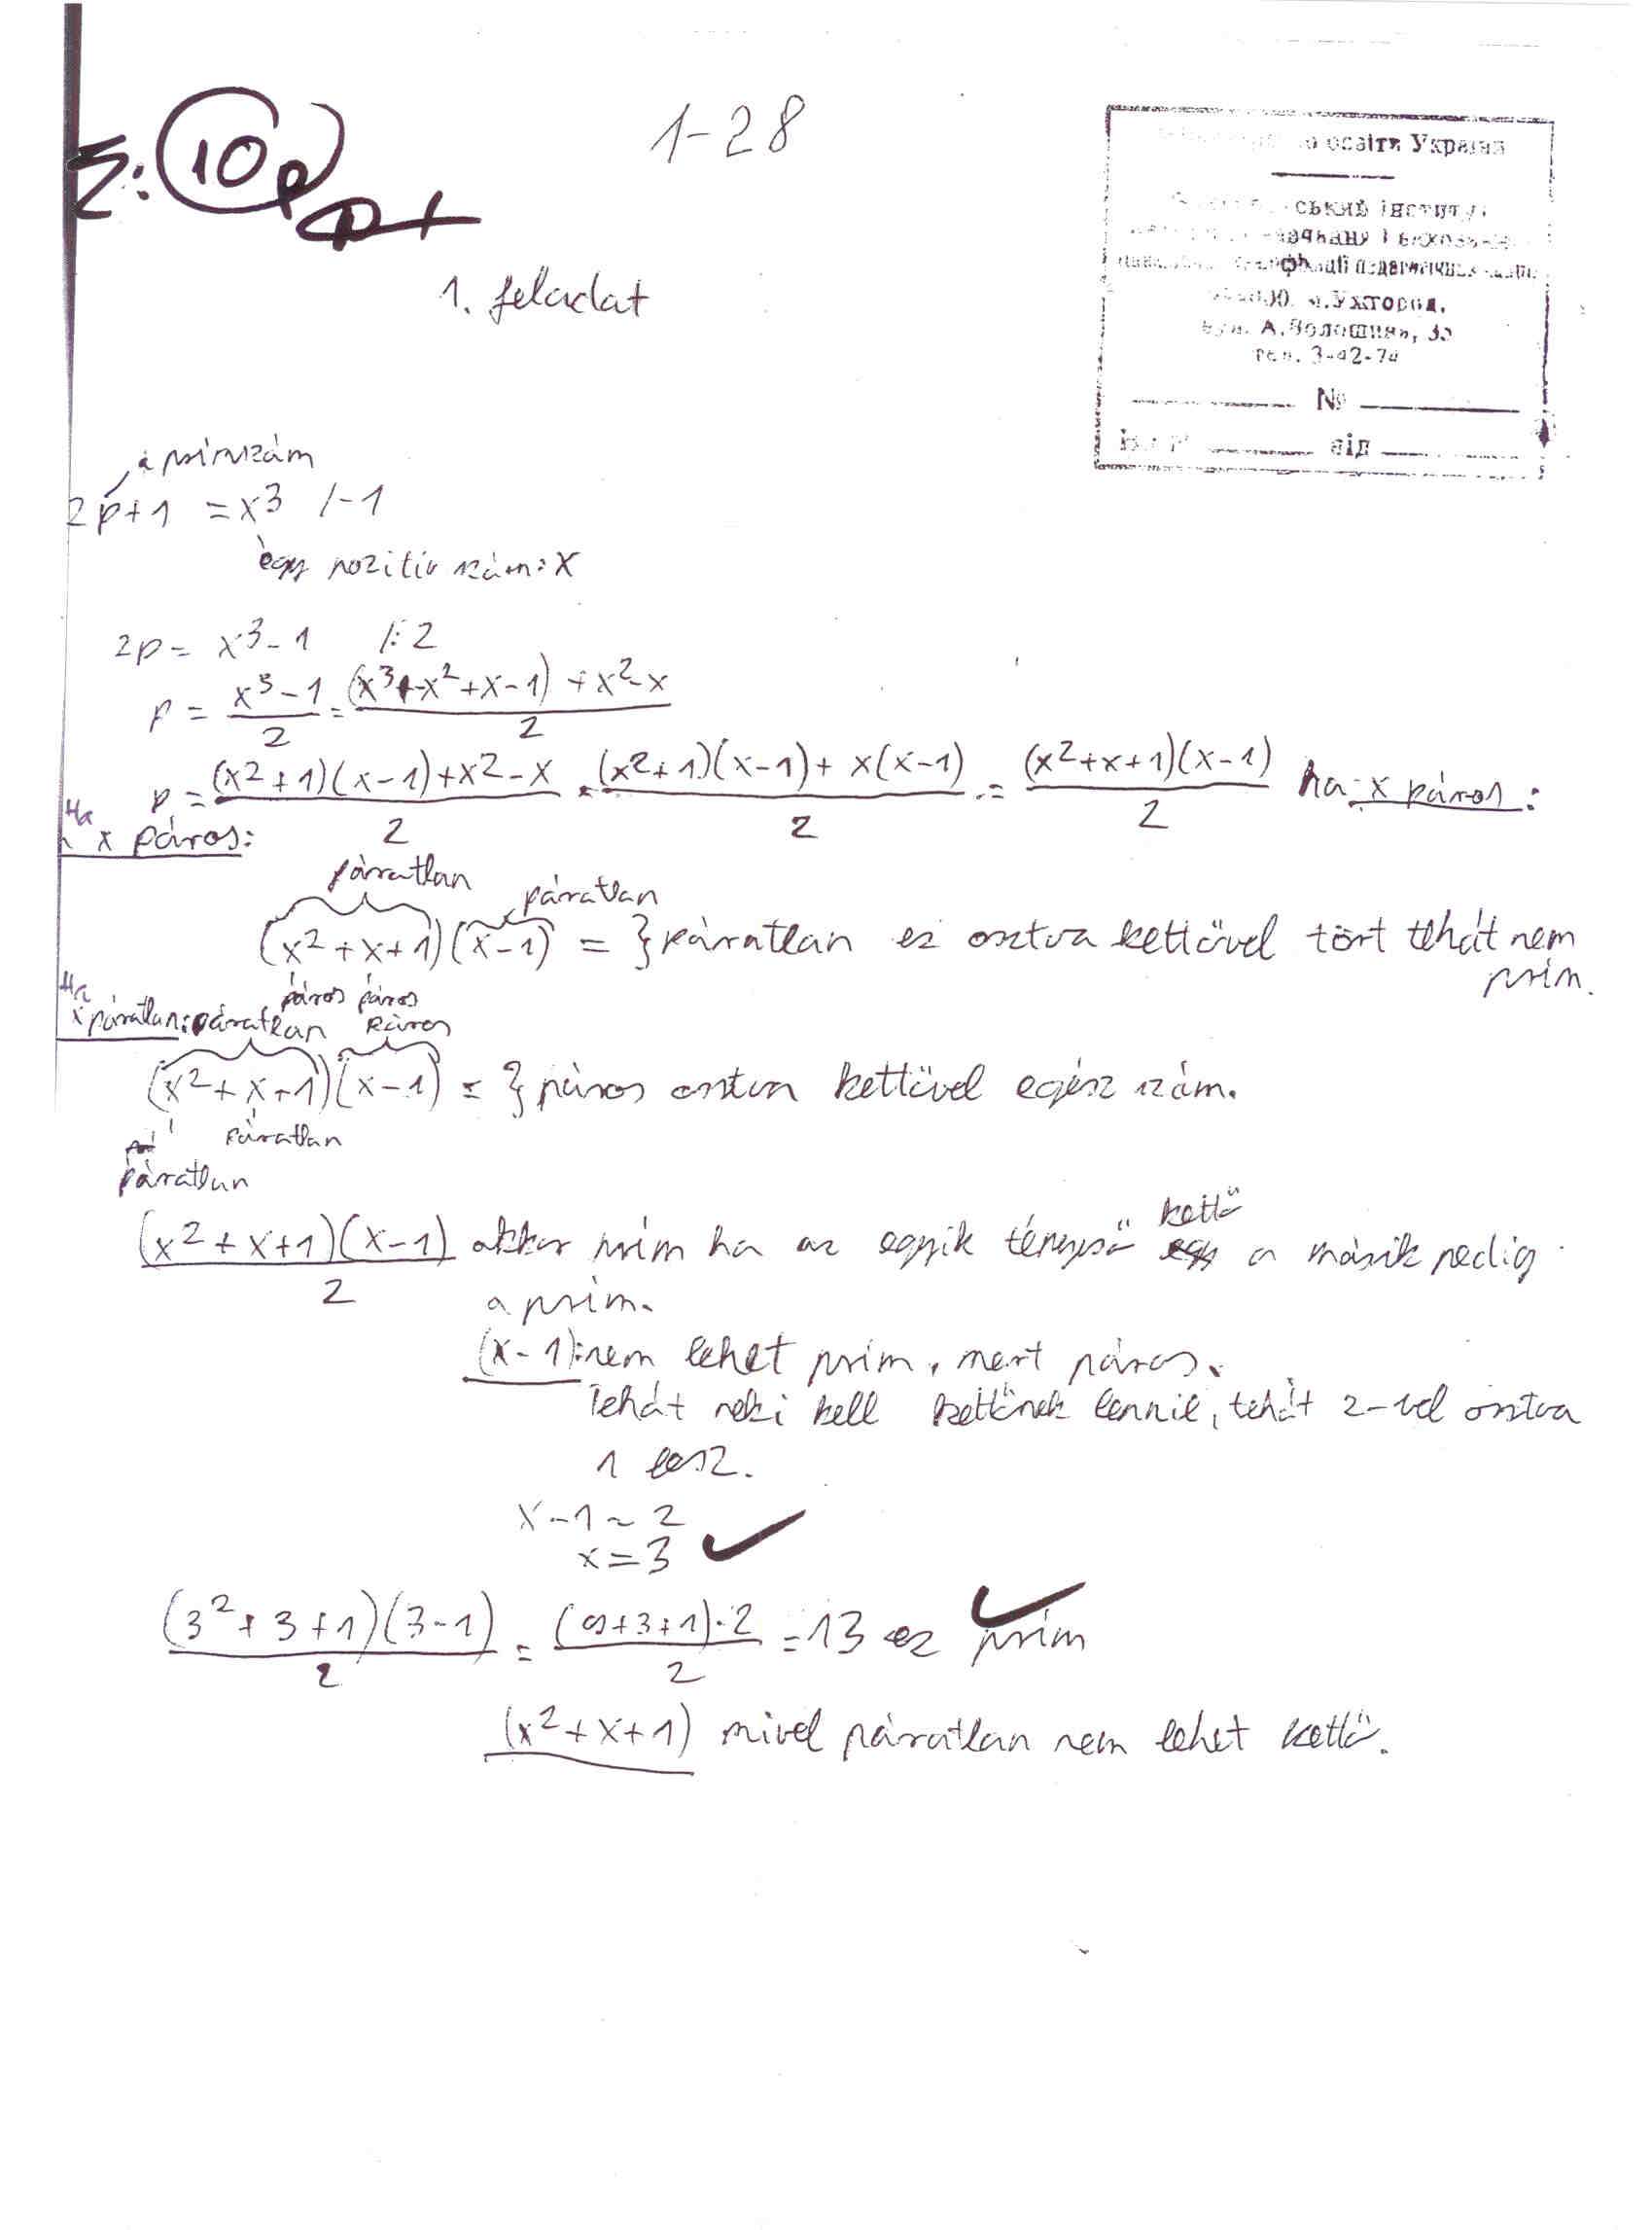 1-28
Σ: 10 p
1. feladat
освіти України
ський інститу
м. Ужгород,
вул. А. Волошина, 35
тел. 3-42-74
№
від
a prímszám
2p+1 = x³ /-1
egy pozitív szám: x
2p = x³-1 /:2
p = (x³-1)/2 = ((x³-x²+x-1)+x²-x)/2
p = ((x²+1)(x-1)+x²-x)/2 = ((x²+1)(x-1)+x(x-1))/2 = ((x²+x+1)(x-1))/2 ha x páros:
Ha x páros:
páratlan páratlan
(x²+x+1)(x-1) = } páratlan ez osztva kettővel tört tehát nem
prím.
páros páros
Ha x páratlan: páratlan páros
(x²+x+1)(x-1) = } páros osztva kettővel egész szám.
páratlan
páratlan
((x²+x+1)(x-1))/2 akkor prím ha az egyik tényező kettő a másik pedig
a prím.
(x-1): nem lehet prím, mert páros.
Tehát neki kell kettőnek lennie, tehát 2-vel osztva
1 lesz.
x-1=2
x=3 ✓
((3²+3+1)(3-1))/2 = ((9+3+1)·2)/2 = 13 ez prím ✓
(x²+x+1) mivel páratlan nem lehet kettő.